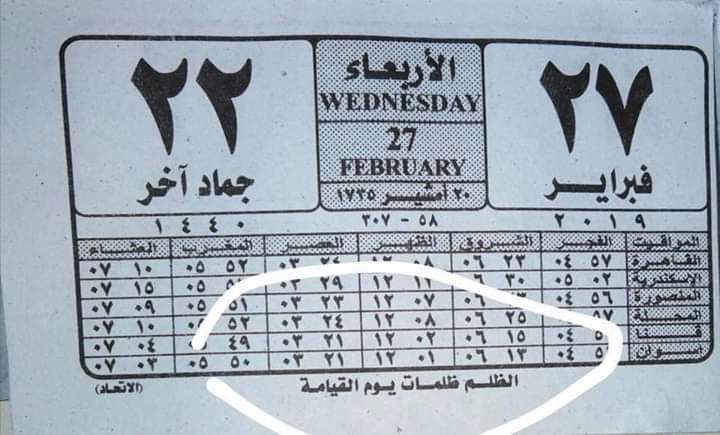 ٢٧
فبراير
الأربعاء
WEDNESDAY
27
FEBRUARY
٢٠ أمشير ١٧٣٥
٢٢
جماد آخر
٢٠١٩ ٥٨ - ٣٠٧ ١٤٤٠
المواقيت الفجر الشروق الظهر العصر المغرب العشاء
القاهرة ٥٧ ٠٤ ٢٣ ٠٦ ٠٨ ١٢ ٢٤ ٠٣ ٥٢ ٠٥ ١٠ ٠٧
الإسكندرية ٠٢ ٠٥ ٣٠ ٠٦ ١٢ ٢٩ ٠٣ ٠٥ ١٥ ٠٧
المنصورة ٥٦ ٠٤ ٠٦ ٠٧ ١٢ ٢٣ ٠٣ ٥١ ٠٥ ٠٩ ٠٧
المحلة ٥٧ ٢٥ ٠٦ ٠٨ ١٢ ٢٤ ٠٣ ٥٢ ١٠ ٠٧
قنا ٠٤ ١٥ ٠٦ ٠٢ ١٢ ٢١ ٠٣ ٤٩ ٠٤ ٠٧
أسوان ٠٤ ١٣ ٠٦ ٠١ ١٢ ٢١ ٠٣ ٥٠ ٠٥ ٠٣ ٠٧
الظلم ظلمات يوم القيامة (الاتحاد)